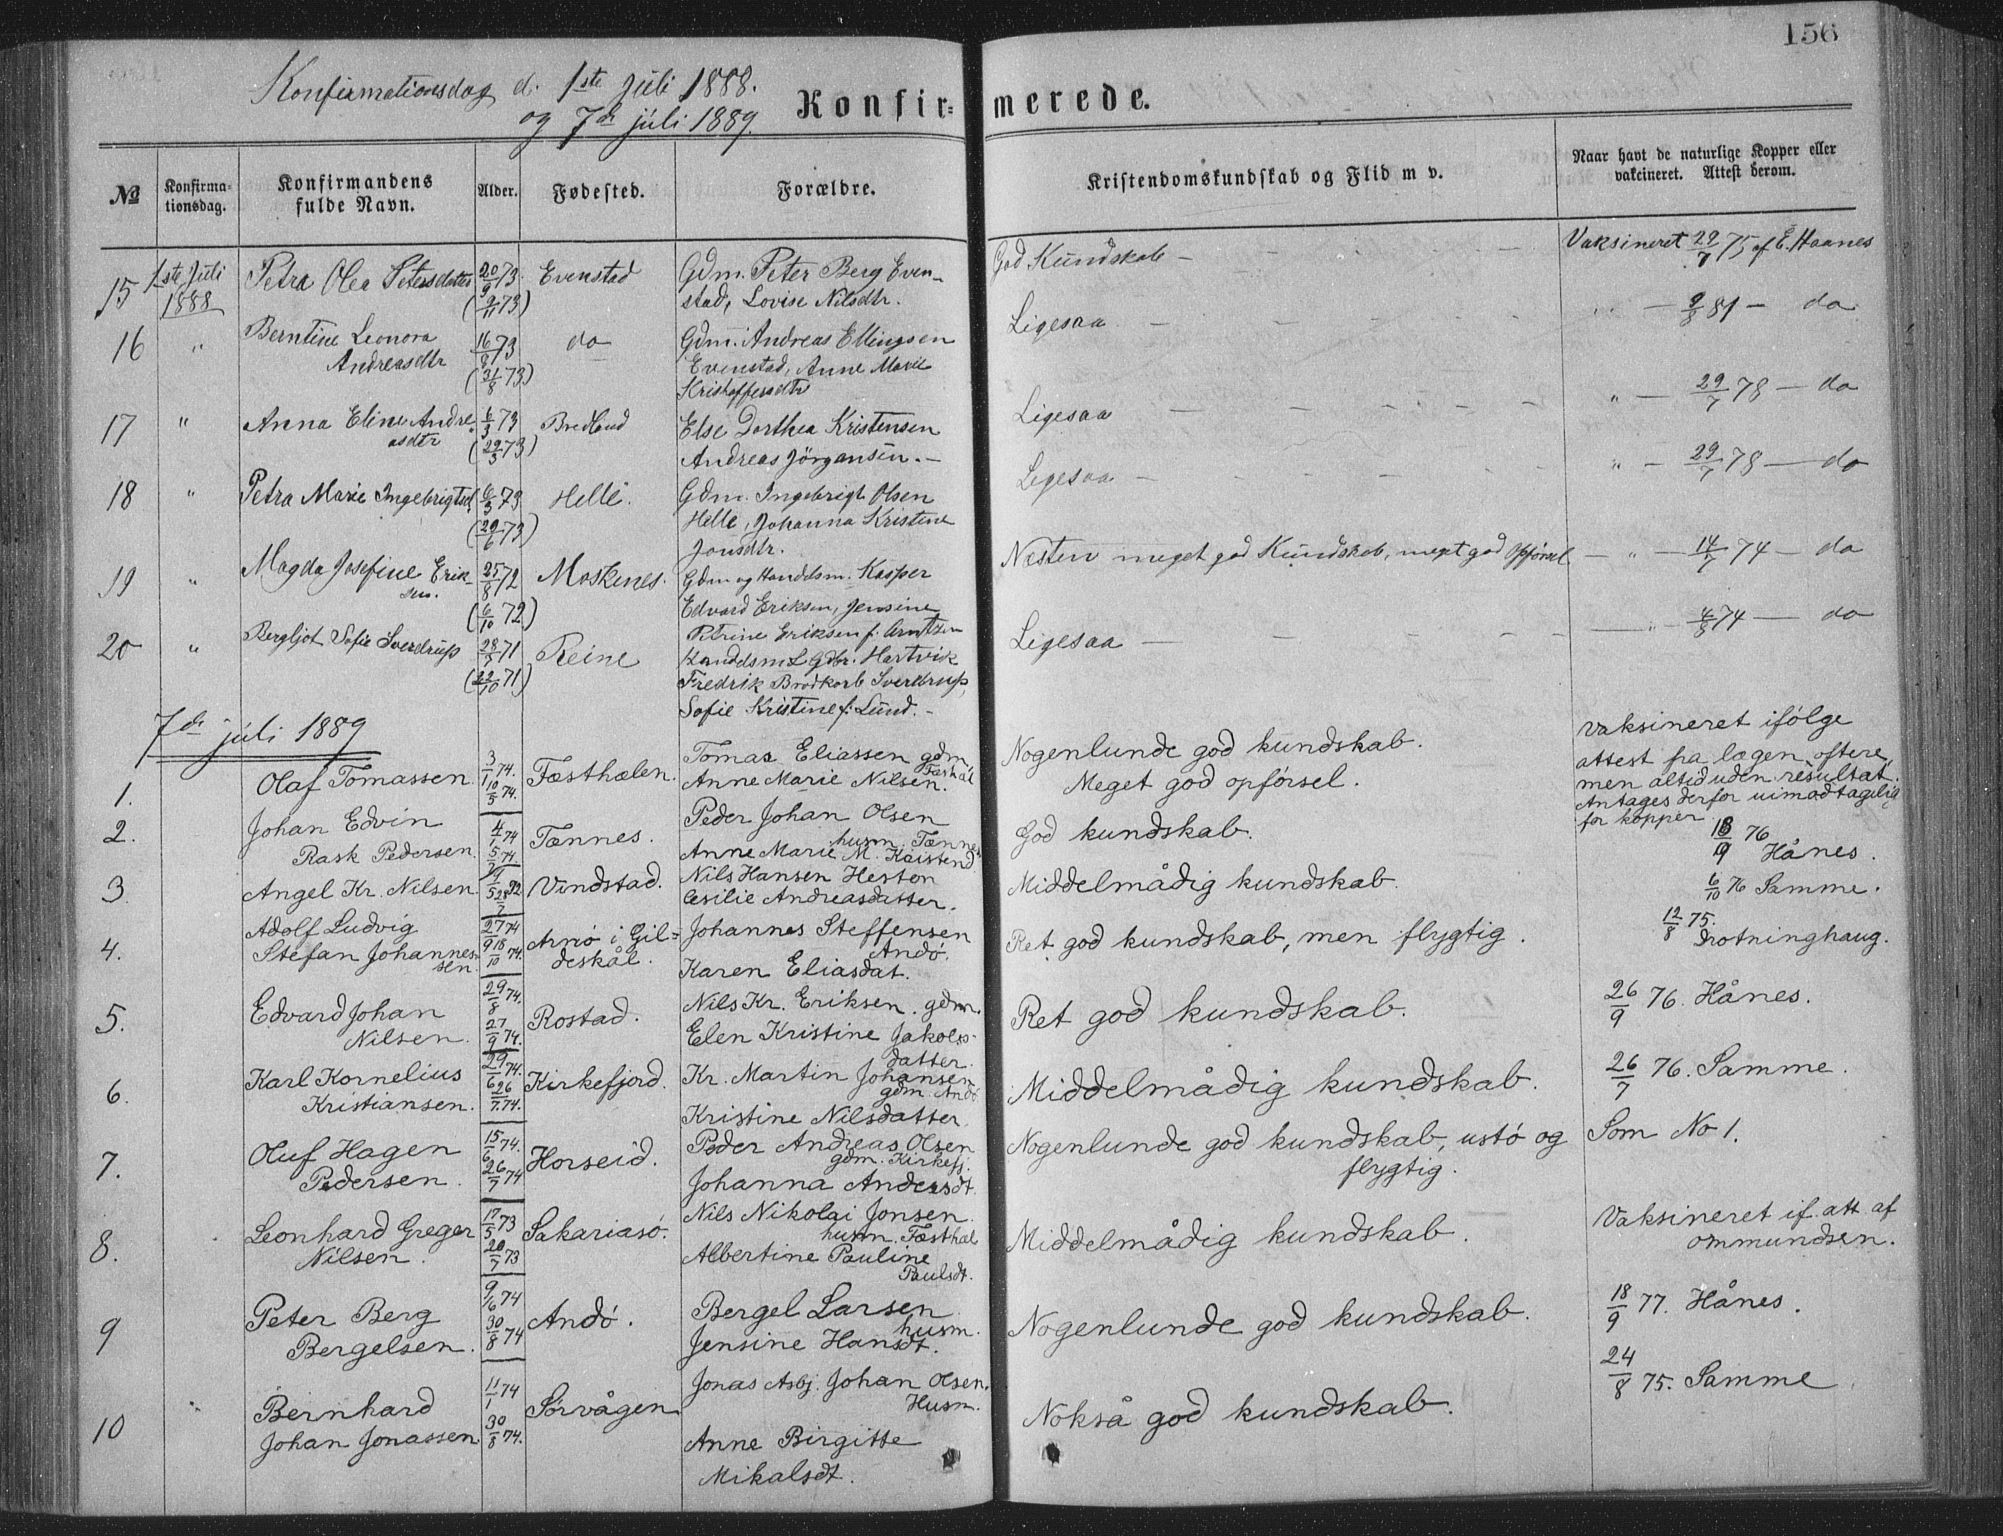 156
Konfirmationsdag d. 1ste Juli 1888.
og 7de juli 1889.
Konfir= merede.
No
Konfirma-
tionsdag.
Konfirmandens
fulde Navn.
Alder.
Fødested.
Forældre.
Kristendomskundskab og Flid m v.
Naar havt de naturlige Kopper eller
vakcineret. Attest derom.
15 1ste Juli 1888 Petra Olea Petersdatter 20/9 73 (9/11 73) Evenstad
Gdm. Peter Berg Even-
stad, Lovise Nilsdtr.
God Kundskab - Vaksineret 29/7 75 af E. Haanes
16 " Berntine Leonora
Andreasdtr (31/8 73) do
Gdm. Andreas Ellingsen
Evenstad, Anne Marie
Kristoffersdtr
Ligesaa - " - 9/8 81 - do
17 " Anna Eline Andre-
asdtr 6/3 73
Else Dorthea Kristensen
Andreas Jörgensen. -
Ligesaa - " - 29/7 78 - do
18 " Petra Marie Ingebrigtsd. 6/3 73 (29/6 73) Helle.
Gdm. Ingebrigt Olsen
Helle, Johanna Kristine
Jonsdtr.
Ligesaa - " - 29/7 78 - do
19 " Magda Josefine Erik-
sen. 25/8 72 (6/10 72) Moskenes.
Gdm og Handelsm. Kasper
Edvard Eriksen, Jensine
Petrine Eriksen f. Arntzen
Nesten meget god Kundskab, meget god Opførsel - " - 14/7 74 - do
20 " Bergljot Sofie Sverdrup 71 (22/10 71) Reine
Handelsm & Gdbr. Hartvik
Fredrik Brodkorb Sverdrup,
Sofie Kristine f. Lund. -
Ligesaa - " 74 - do
7de juli 1889
1. Olaf Tomassen. 3/1 74. 10/5 74. Fæsthælen.
Tomas Eliassen gdm.
Fæsthæl
Anne Marie Nilsen.
Nogenlunde god kundskab.
Meget god opførsel.
Vaksineret ifølge
attest fra lægen oftere,
men altid uden resultat.
Antages derfor uimodtagelig
for kopper
2. Johan Edvin
Rask Pedersen. 4/1 74 5/5 74. Tønnes.
Peder Johan Olsen
husm. Tønnes
Anne Marie M. Kristend
God kundskab. 18/9 76
Hånes.
3. Angel Kr. Nilsen. Vindstad.
Nils Hansen Heston
Cesilie Andreasdatter.
Middelmådig kundskab. 6/10 76 Samme.
4. Adolf Ludvig
Stefan Johannes-
sen. 27/9 74 18/10 74. Arnø i Gil=
deskål.
Johannes Steffensen
Andø.
Karen Eliasdat.
Ret god kundskab, men flygtig. 12/8 75.
Drotninghaug.
5. Edvard Johan
Nilsen. 29/8 74. 27/9 74. Rostad.
Nils Kr. Eriksen. gdm.
Elen Kristine Jakobs-
datter.
Ret god kundskab. 26/9 76. Hånes.
6. Karl Kornelius
Kristiansen. 29/6 74. 26/7 74. Kirkefjord.
Kr. Martin Johansen
gdm. Andø
Kristine Nilsdatter.
Middelmådig kundskab. 26/7 76. Samme.
7. Oluf Hagen
Pedersen. 15/6 74. 26/7 74 Horseid.
Peder Andreas Olsen
gdm. Kirkefj.
Johanna Andersdt.
Nogenlunde god kundskab, ustø og
flygtig.
Som No 1.
8. Leonhard Greger
Nilsen. 17/5 73 20/7 73 Sakariasø.
Nils Nikolai Jonsen.
husm. Fæsthæl
Albertine Pauline
Paulsdt.
Middelmådig kundskab.
Vaksineret if. att. af
Ommundsen.
9 Peter Berg
Bergelsen. 9/6 74 30/8 74 Andø.
Bergel Larsen
husm.
Jensine Hansdt.
Nogenlunde god kundskab. 18/9 77. Hånes.
10 Bernhard
Johan Jonassen 11/1 74 30/8 74. Sørvågen
Jonas Asbj. Johan Olsen.
Husm.
Anne Birgitte
Mikalsdt.
Nokså god kundskab. 24/8 75. Samme